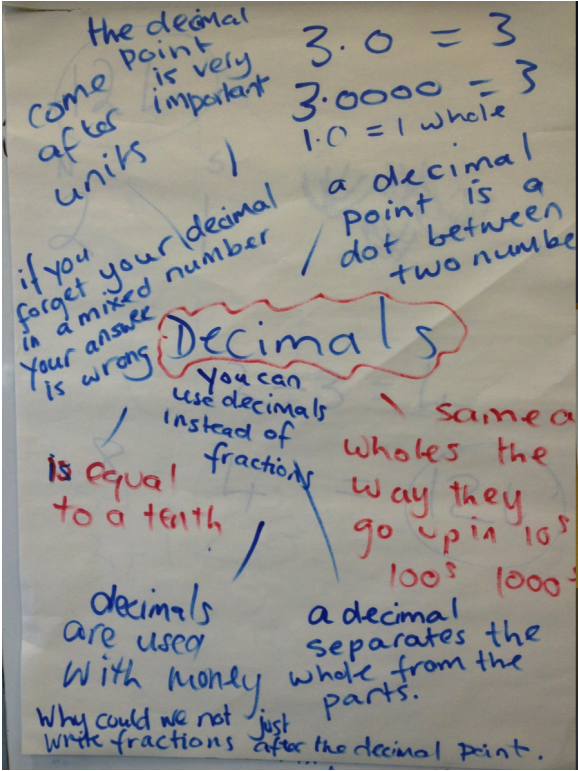 the decimal
point
is very
important
come
after
units
3.0 = 3
3.0000 = 3
1.0 = 1 whole
a decimal
point is a
dot between
two numbe
if you
forget your decimal
in a mixed number
your answer
is wrong
Decimals
you can
use decimals
instead of
fractions
is equal
to a tenth
same a
wholes the
way they
go up in 10s
100s 1000s
decimals
are used
with money
a decimal
separates the
whole from the
parts.
Why could we not just
write fractions after the decimal point.